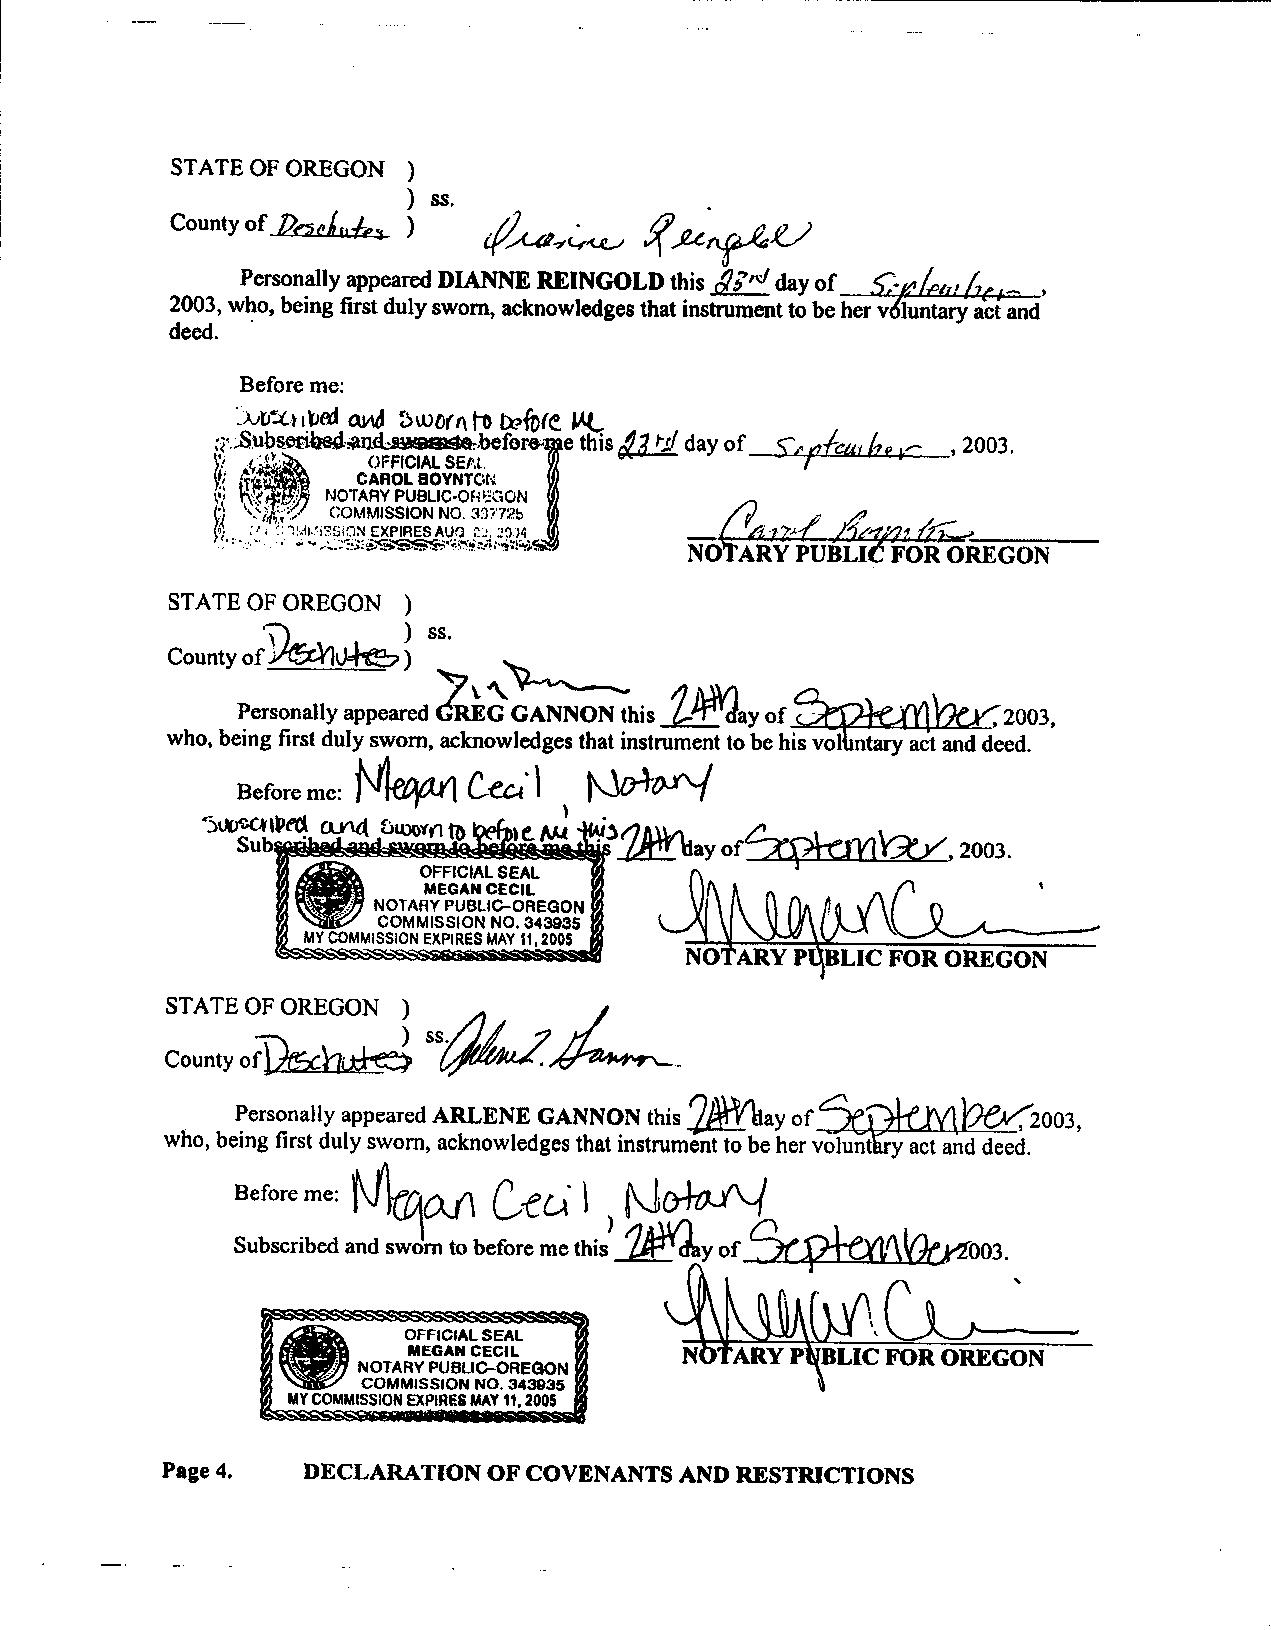 STATE OF OREGON )
) ss.
County of Deschutes )
Dianne Reingold
Personally appeared DIANNE REINGOLD this 23rd day of September,
2003, who, being first duly sworn, acknowledges that instrument to be her voluntary act and
deed.
Before me:
Subscribed and Sworn to before me
Subscribed and sworn to before me this 23rd day of September, 2003.
OFFICIAL SEAL
CAROL BOYNTON
NOTARY PUBLIC-OREGON
COMMISSION NO. 337725
MY COMMISSION EXPIRES AUG 2004
Carol Boynton
NOTARY PUBLIC FOR OREGON
STATE OF OREGON )
) ss.
County of Deschutes )
Personally appeared GREG GANNON this 24th day of September, 2003,
who, being first duly sworn, acknowledges that instrument to be his voluntary act and deed.
Before me: Megan Cecil, Notary
Subscribed and Sworn to before me this
Subscribed and sworn to before me this 24th day of September, 2003.
OFFICIAL SEAL
MEGAN CECIL
NOTARY PUBLIC-OREGON
COMMISSION NO. 343935
MY COMMISSION EXPIRES MAY 11, 2005
Megan Ce
NOTARY PUBLIC FOR OREGON
STATE OF OREGON )
) ss.
County of Deschutes
Arlene L. Gannon
Personally appeared ARLENE GANNON this 24th day of September, 2003,
who, being first duly sworn, acknowledges that instrument to be her voluntary act and deed.
Before me: Megan Cecil, Notary
Subscribed and sworn to before me this 24th day of September 2003.
OFFICIAL SEAL
MEGAN CECIL
NOTARY PUBLIC-OREGON
COMMISSION NO. 343935
MY COMMISSION EXPIRES MAY 11, 2005
Megan Ce
NOTARY PUBLIC FOR OREGON
Page 4. DECLARATION OF COVENANTS AND RESTRICTIONS